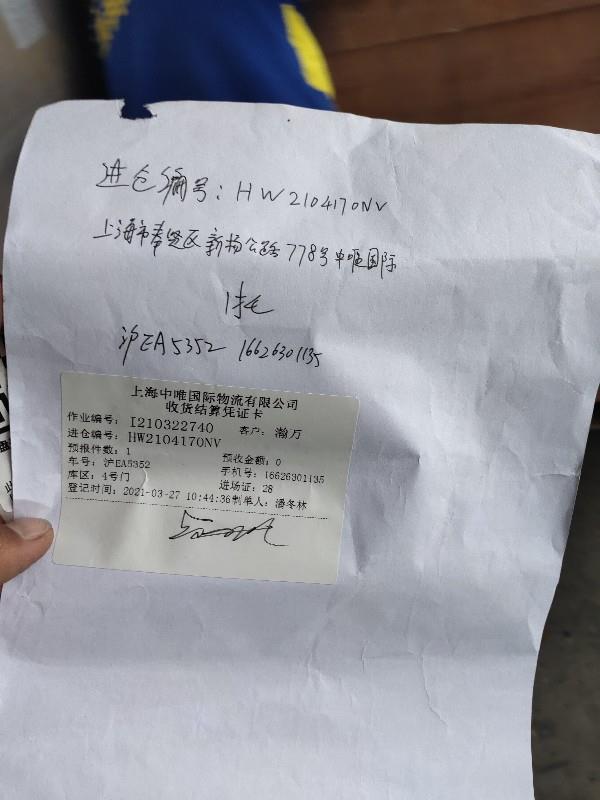 进仓编号：HW2104170NV
上海市奉贤区新杨公路778号中唯国际
1托
沪EA5352 16626301135
上海中唯国际物流有限公司
收货结算凭证卡
作业编号：I210322740 客户：瀚万
进仓编号：HW2104170NV
预报件数：1 预收金额：0
车号：沪EA5352 手机号：16626301135
库区：4号门 进场证：28
登记时间：2021-03-27 10:44:36制单人：潘冬林